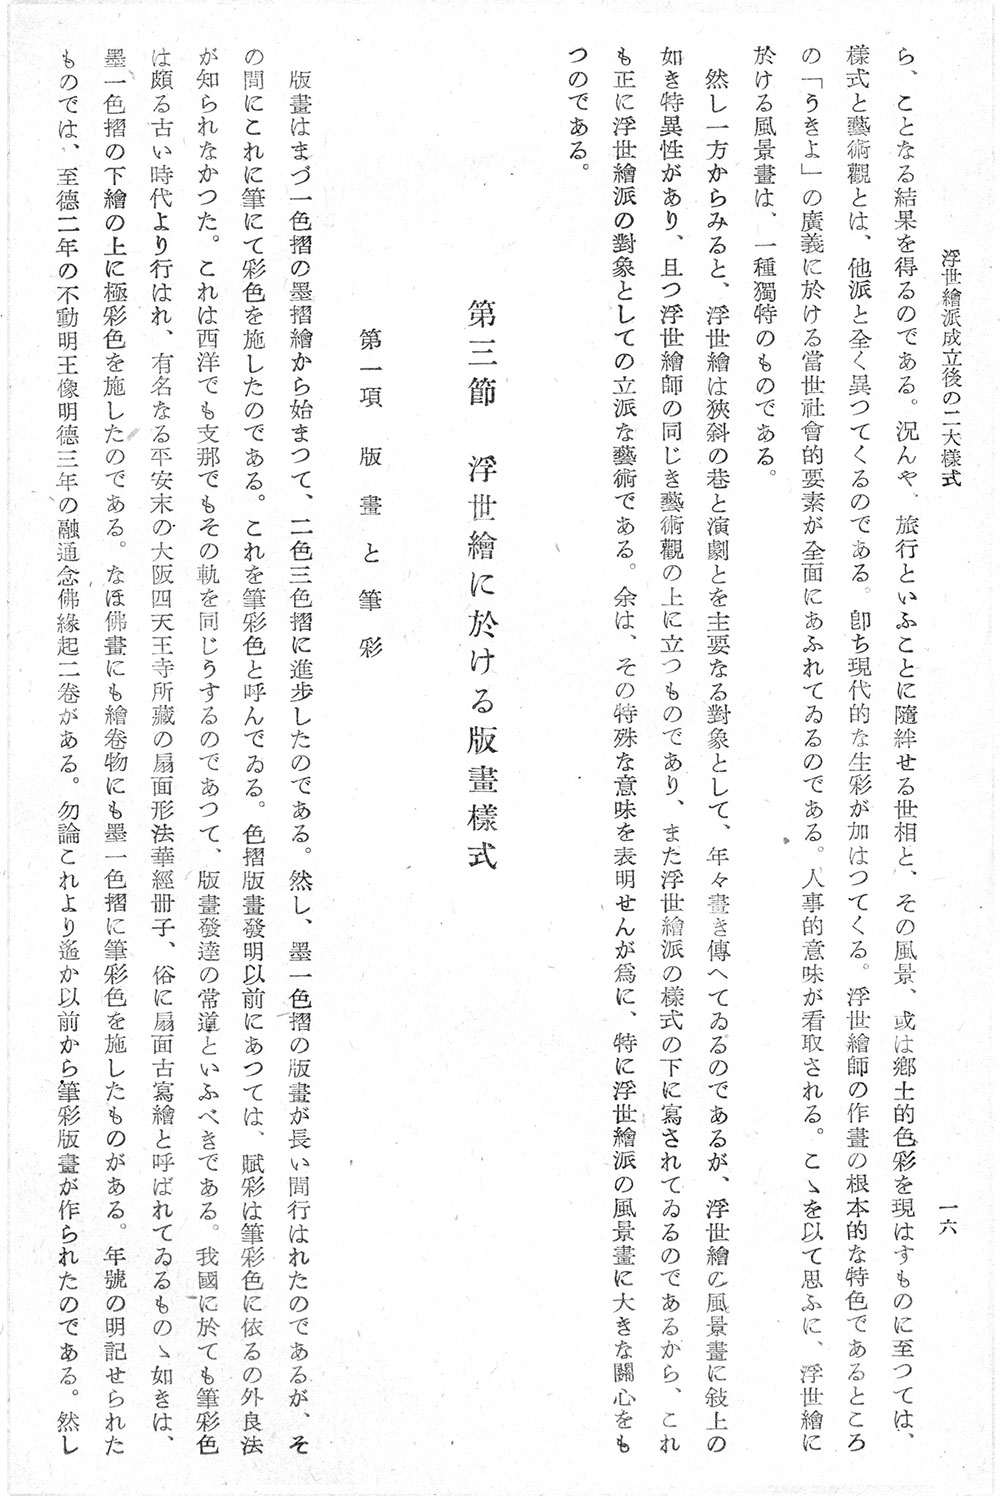 浮世繪派成立後の二大樣式
一六
ら、ことなる結果を得るのである。況んや、旅行といふことに隨絆せる世相と、その風景、或は鄕土的色彩を現はすものに至つては、
樣式と藝術觀とは、他派と全く異つてくるのである。卽ち現代的な生彩が加はつてくる。浮世繪師の作畫の根本的な特色であるところ
の「うきよ」の廣義に於ける當世社會的要素が全面にあふれてゐるのである。人事的意味が看取される。こゝを以て思ふに、浮世繪に
於ける風景畫は、一種獨特のものである。
然し一方からみると、浮世繪は狹斜の巷と演劇とを主要なる對象として、年々畫き傳へてゐるのであるが、浮世繪の風景畫に敍上の
如き特異性があり、且つ浮世繪師の同じき藝術觀の上に立つものであり、また浮世繪派の樣式の下に寫されてゐるのであるから、これ
も正に浮世繪派の對象としての立派な藝術である。余は、その特殊な意味を表明せんが爲に、特に浮世繪派の風景畫に大きな關心をも
つのである。
第三節　浮世繪に於ける版畫樣式
第一項　版畫と筆彩
版畫はまづ一色摺の墨摺繪から始まつて、二色三色摺に進步したのである。然し、墨一色摺の版畫が長い間行はれたのであるが、そ
の間にこれに筆にて彩色を施したのである。これを筆彩色と呼んでゐる。色摺版畫發明以前にあつては、賦彩は筆彩色に依るの外良法
が知られなかつた。これは西洋でも支那でもその軌を同じうするのであつて、版畫發達の常道といふべきである。我國に於ても筆彩色
は頗る古い時代より行はれ、有名なる平安末の大阪四天王寺所藏の扇面形法華經册子、俗に扇面古寫繪と呼ばれてゐるものゝ如きは、
墨一色摺の下繪の上に極彩色を施したのである。なほ佛畫にも繪卷物にも墨一色摺に筆彩色を施したものがある。年號の明記せられた
ものでは、至德二年の不動明王像明德三年の融通念佛緣起二卷がある。勿論これより遙か以前から筆彩版畫が作られたのである。然し